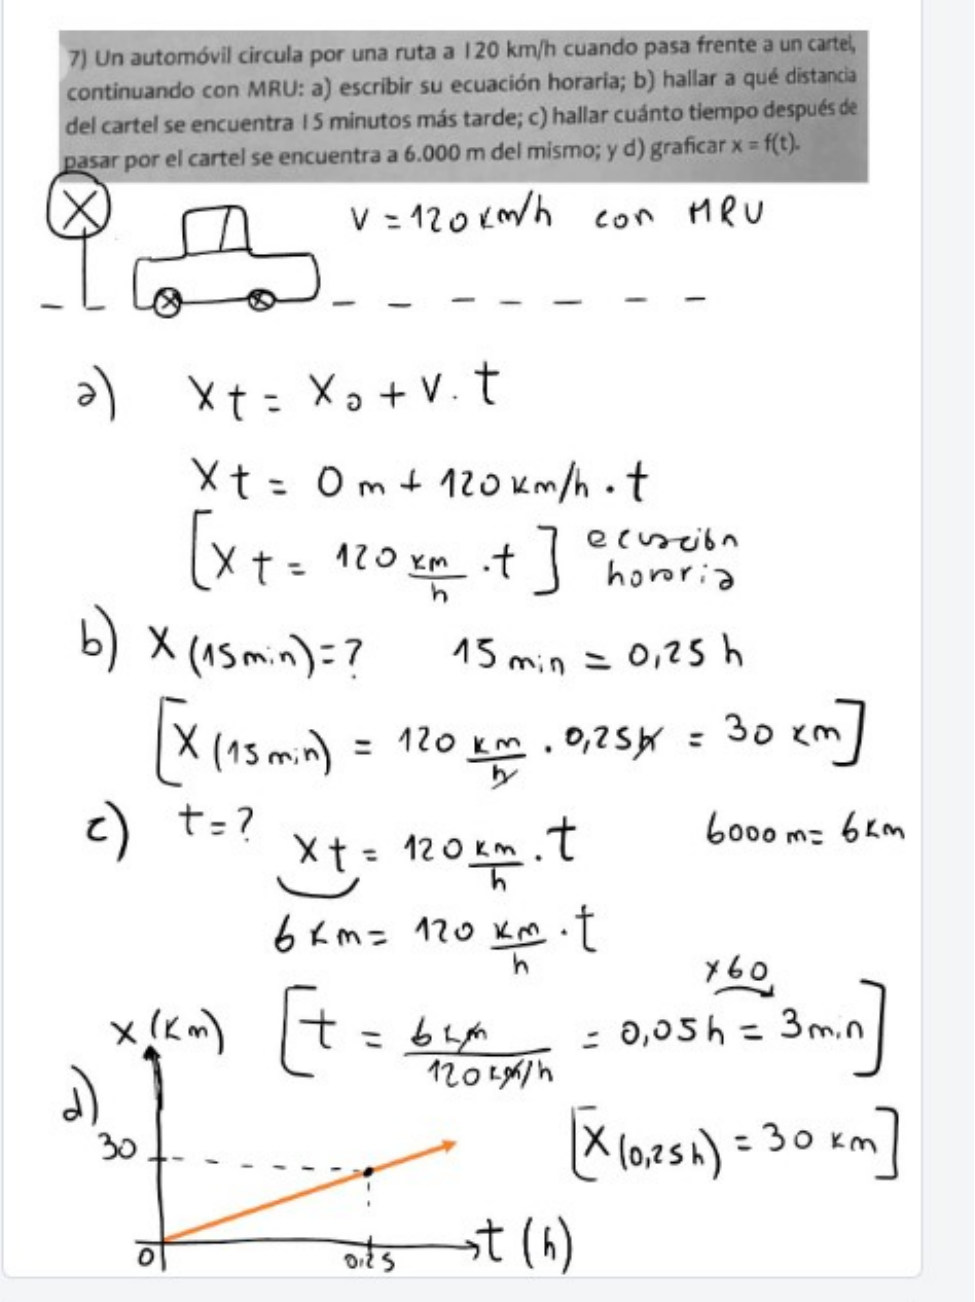 7) Un automóvil circula por una ruta a 120 km/h cuando pasa frente a un cartel,
continuando con MRU: a) escribir su ecuación horaria; b) hallar a qué distancia
del cartel se encuentra 15 minutos más tarde; c) hallar cuánto tiempo después de
pasar por el cartel se encuentra a 6.000 m del mismo; y d) graficar x = f(t).
V = 120 km/h con MRU
a) Xt = X₀ + V . t
Xt = 0 m + 120 km/h . t
[Xt = 120 km/h . t] ecuación
horaria
b) X (15 min) = ? 15 min = 0,25 h
[X (15 min) = 120 km/h . 0,25 h = 30 km]
c) t = ? 6000 m = 6 km
Xt = 120 km/h . t
6 km = 120 km/h . t
x60
[t = 6 km / 120 km/h = 0,05 h = 3 min]
d) X (Km)
[X (0,25 h) = 30 km]
30
0 0,25 t (h)